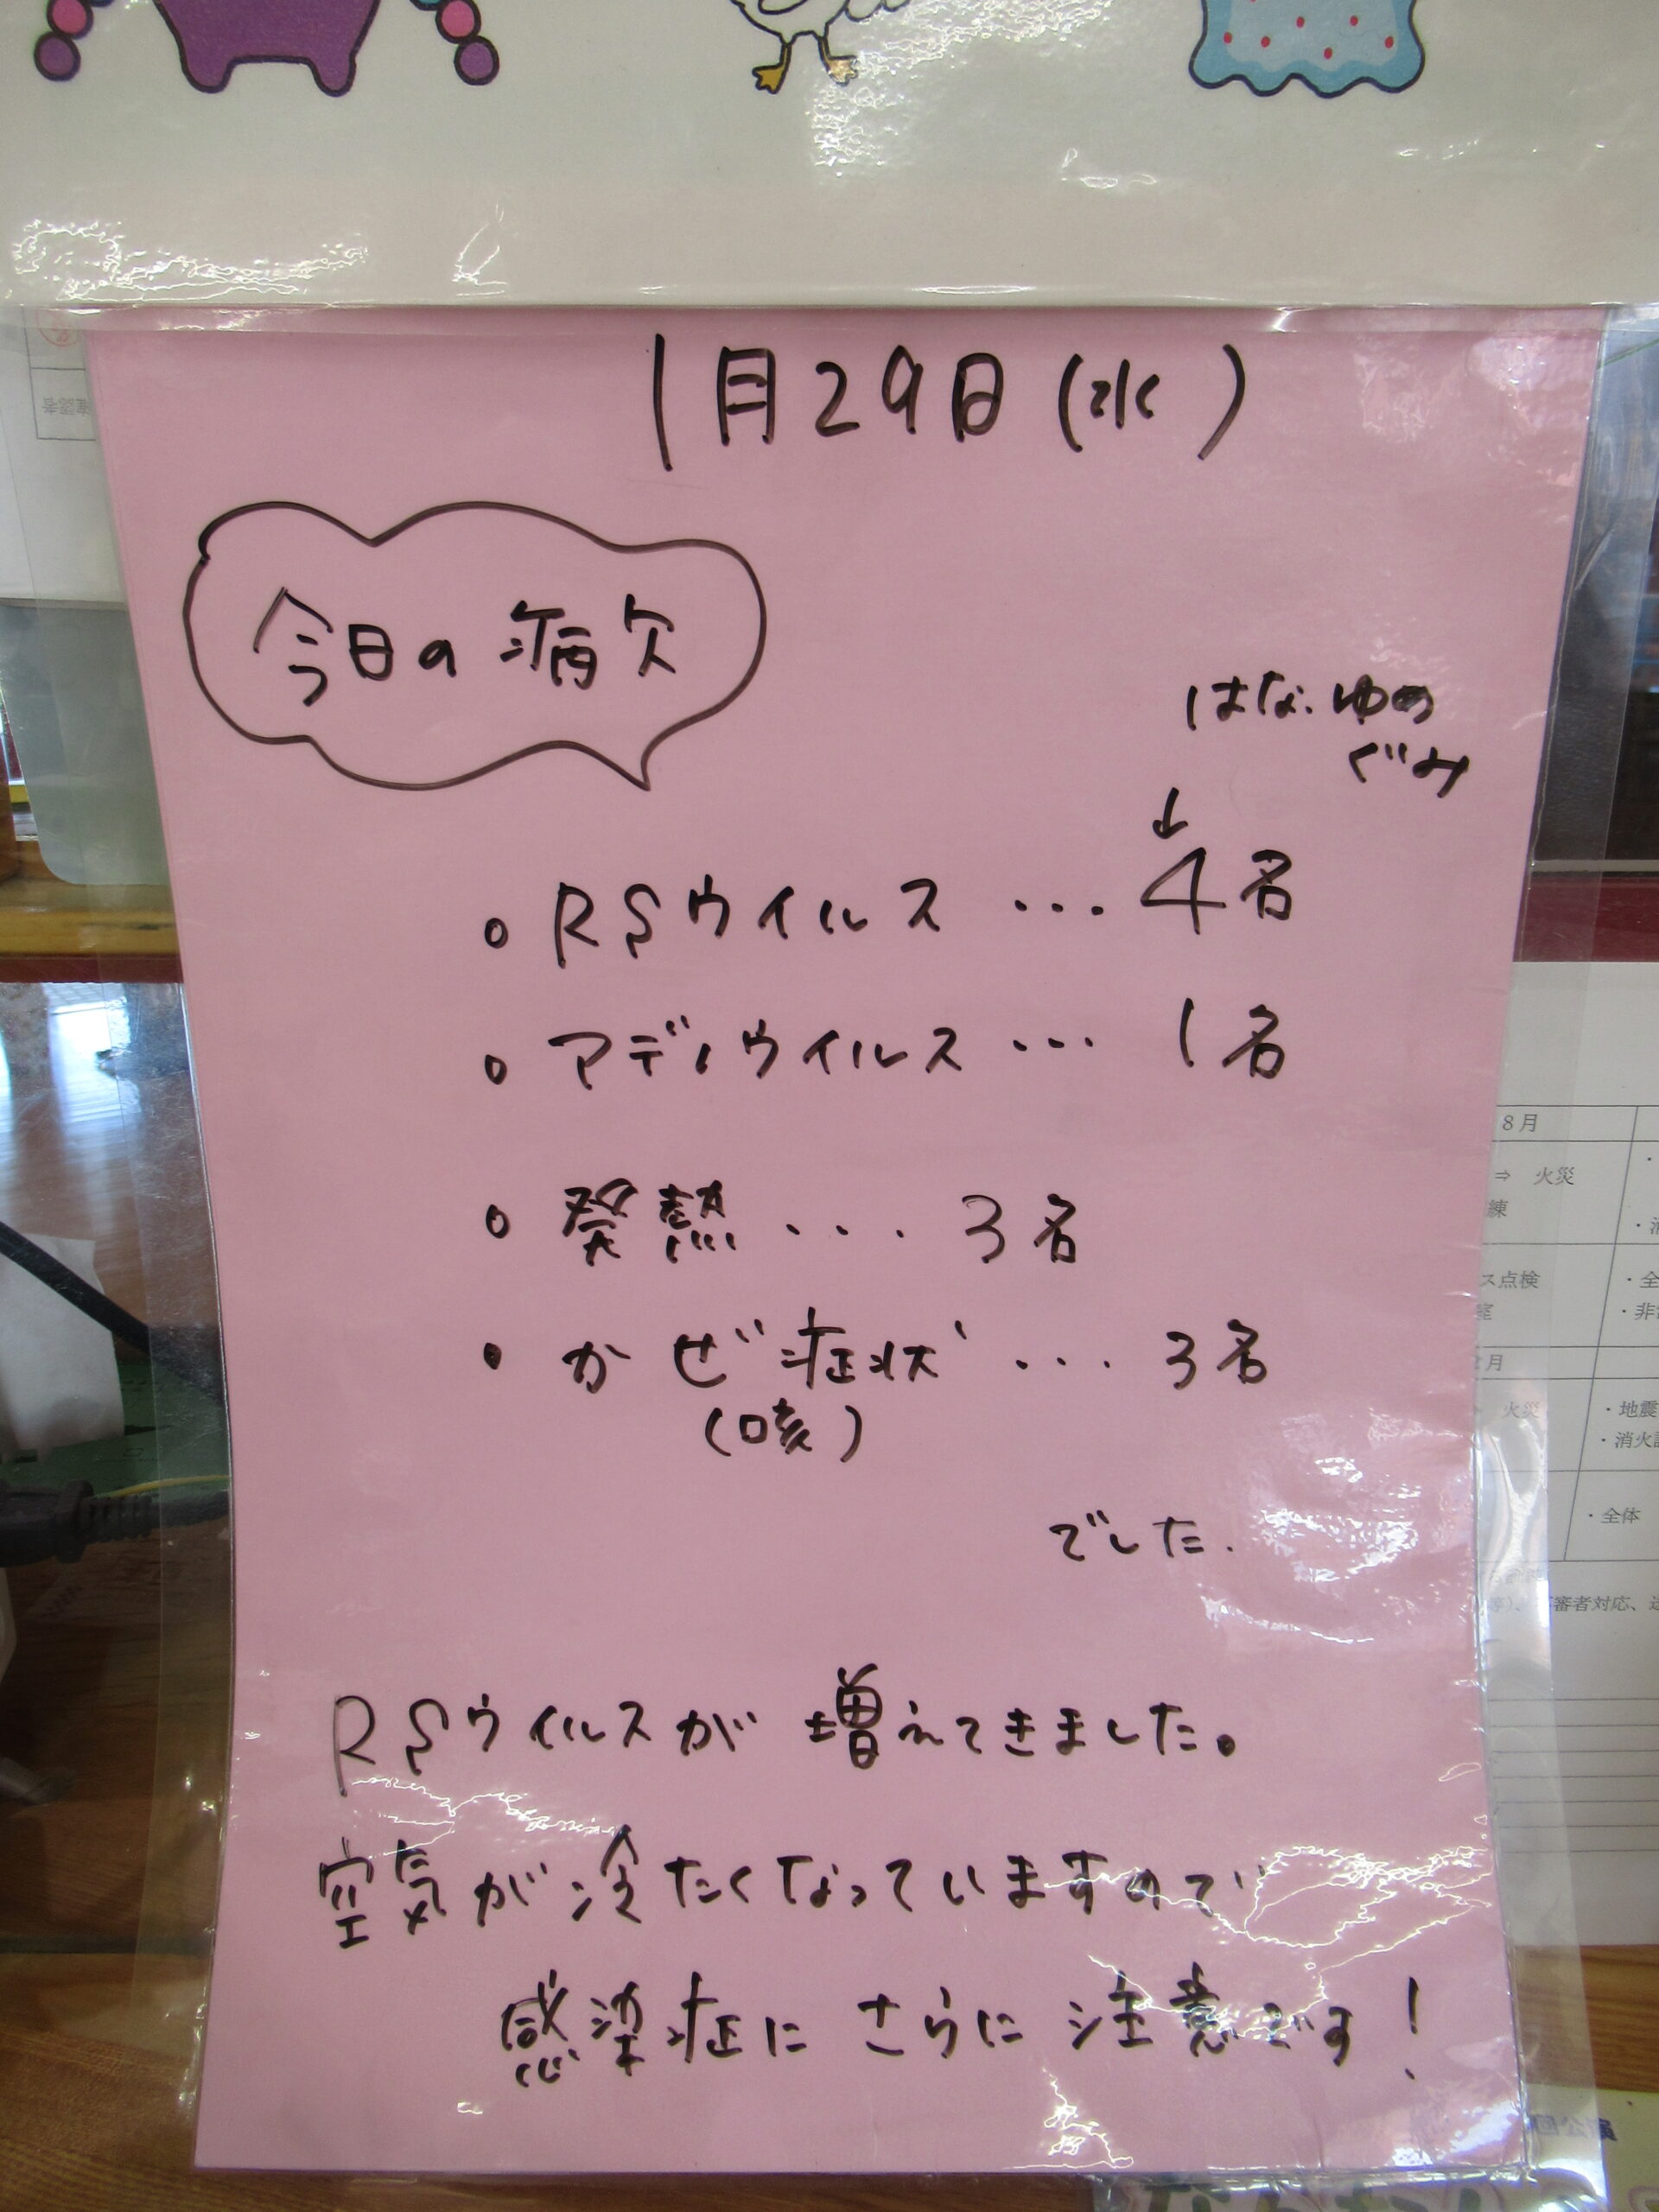 1月29日(水)
今日の病欠
はな.ゆめ
ぐみ
↓
。RSウイルス ... 4名
。アデノウイルス ... 1名
。発熱 ... 3名
・かぜ症状 ... 3名
(咳)
でした.
RSウイルスが 増えてきました。
空気が冷たくなっていますので
感染症に さらに 注意です!
8月
⇒ 火災
練
ス点検
・全
室
・非
月
火災
・地震
・消火
・全体
審者対応、
確認者